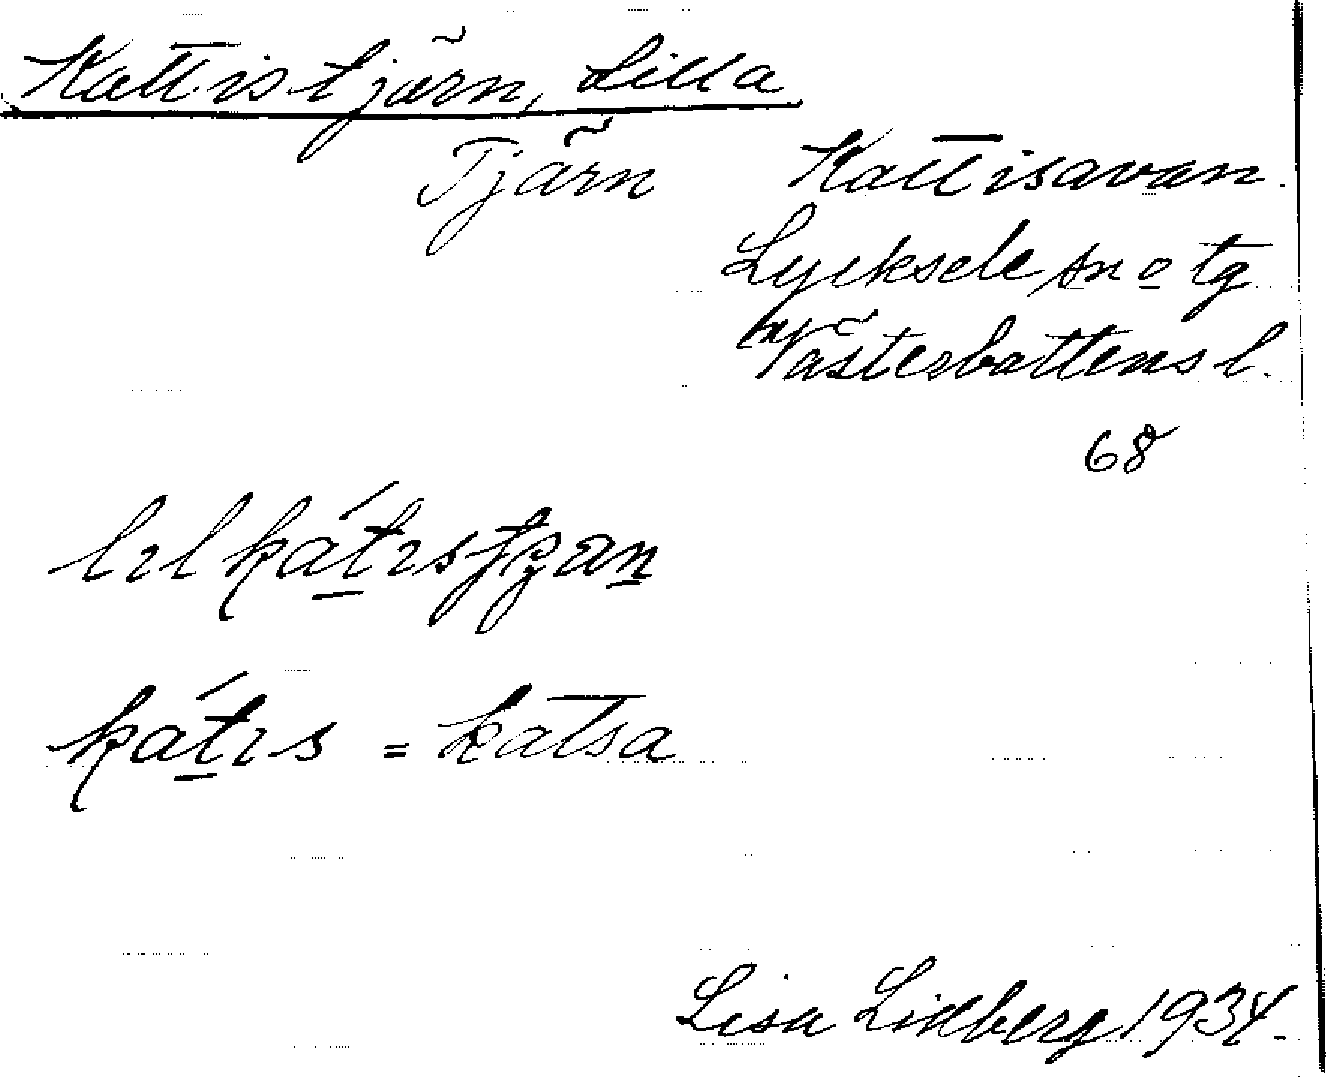 Kattistjärn, Lilla
Tjärn Kattisavan.
Lycksele sn o tg
Västerbottens l.
68
lıl kát̲ıstjan̲
kát̲ıs = katsa
Lisa Lidberg 1934.